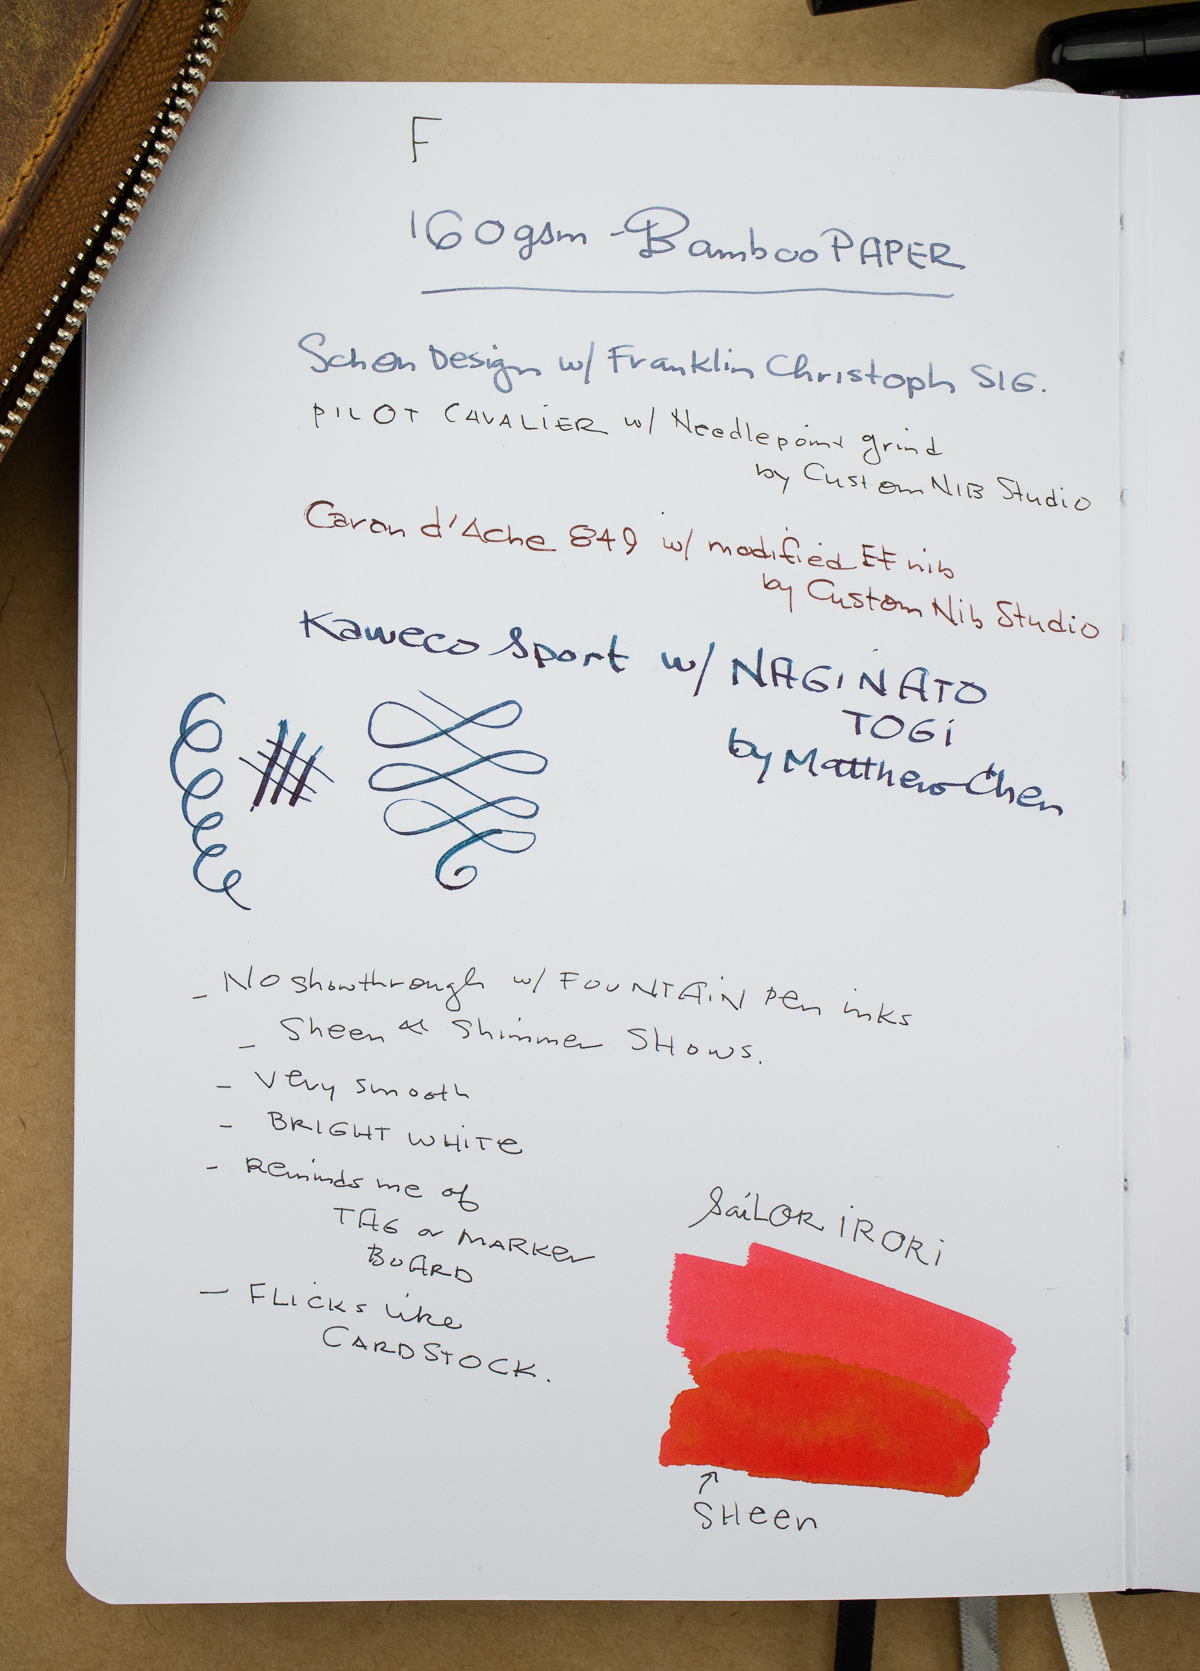 F
160gsm - Bamboo PAPER
Schon Design w/ Franklin Christoph SIG.
PILOT CAVALIER w/ Needlepoint grind
by Custom NIB Studio
Caran d'Ache 849 w/ modified EF nib
by Custom Nib Studio
Kaweco Sport w/ NAGINATO
TOGI
by Matthew Chen
- No showthrough w/ FOUNTAIN pen inks
- Sheen & Shimmer SHOWS.
- very smooth
- BRIGHT WHITE
- Reminds me of
TAG or MARKER
BOARD
- FLICKS like
CARDSTOCK.
SAILOR IRORI
↑
SHeen